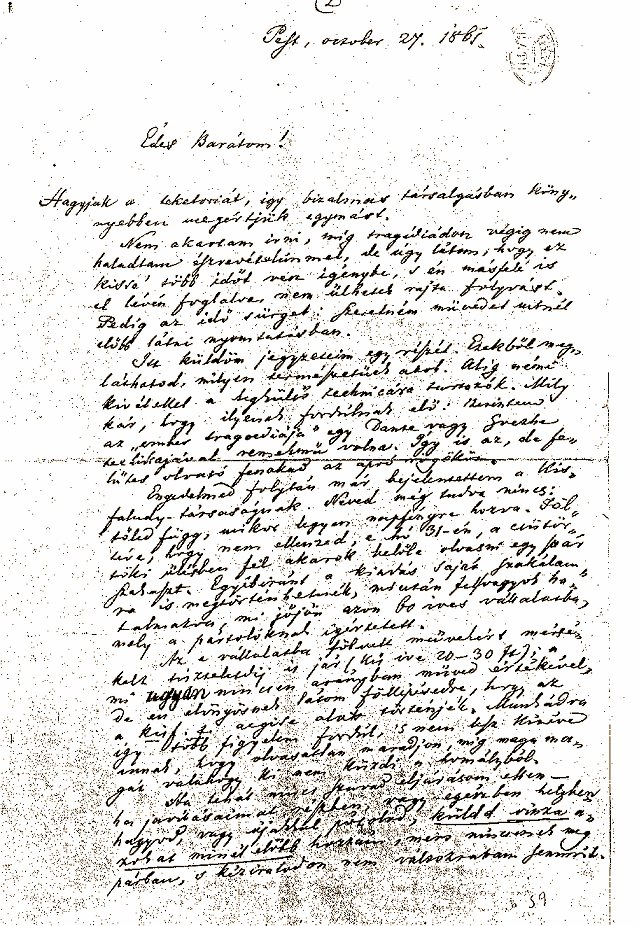 Pest, october 27. 1861.
Édes Barátom!
Hagyjuk a teketoriát, igy bizalmas társalgásban köny„
nyebben megértjük egymást.
Nem akartam irni, míg tragédiádon végig nem
haladtam észrevételimmel, de úgy látom, hogy ez
kissé több időt vesz igénybe, s én másfelé is
el lévén foglalva, nem ülhetek rajta folyvást.
Pedig az idő sürget: szeretném művedet mitnél
előbb látni nyomtatásban.
Itt küldöm jegyzeteim egy részét. Ezekből meg„
láthatod, milyen természetüek azok. Alig némi
kivétellel a legkülső technicára tartozók. Mily
kár, hogy ilyenek fordúlnak elő! Szerintem
az „ember tragoediája" egy Dante vagy Goethe
technikájával remekmű volna. Így is az, de fe„
lületes olvasó fenakad az apró rögökön.
Engedelmed folytán már bejelentettem a Kis„
faludy-társaságnak. Neved még tudva nincs:
tőled függ, mikor legyen napfényre hozva. Föl„
téve, hogy nem ellenzed, e hó 31-én, a csütör„
töki ülésben fel akarok belőle olvasni egy pár
szakaszt. Egyébiránt a kiadás saját szakálam„
ra is megtörténhetnék, miután felvagyok ha„
talmazva, mi jőjön azon 60 íves vállalatba,
mely a pártolóknak igértetett.
Az e vállalatba fölvett művekért mérsé„
kelt tiszteletdíj is jár (kis íve 20-30 ft); a
mi ugyan nincsen arányban műved értékével,
de én előnyösnek látom föllépésedre, hogy az
a Kisf. t. aegise alatt történjék. Munkádra
így több figyelem fordúl, s nem lesz kitéve
annak, hogy olvasatlan maradjon, míg maga ma„
gát valahogy ki nem küzdi a homályból.
Ha tehát nincs szavad eljárásom ellen —
ha javitásaimat részben, vagy egészben helyben
hagyod, vagy ujakkal pótolod, küldd vissza a„
zokat minél előbb hozzám, mert nincsenek meg
párban, s kéziratodon nem változtattam semmit.
39